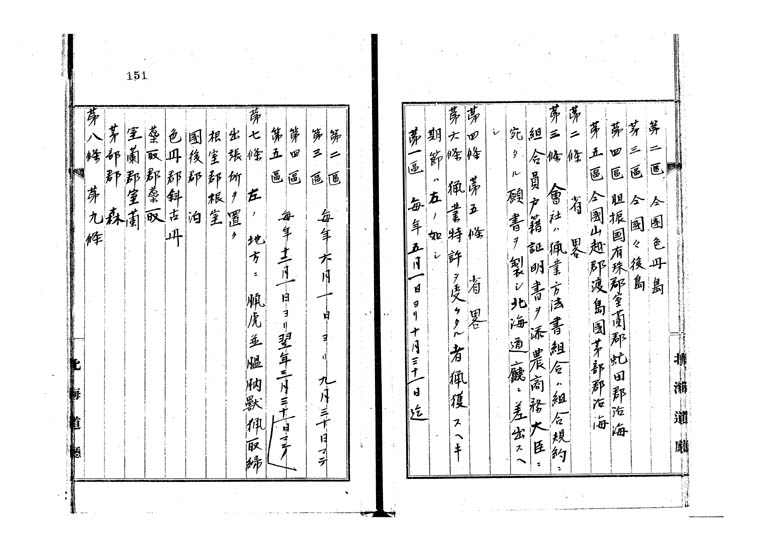 第二區 仝國色丹島
第三區 仝國々後島
第四區 胆振國有珠郡室蘭郡虻田郡沿海
第五區 仝國山越郡渡島國茅部郡沿海
第二條 省畧
第三條 會社ハ猟業方法書組合ハ組合規約ニ
組合員戸籍証明書ヲ添農商務大臣ニ
宛タル願書ヲ製シ北海道廳ニ差出スヘ
シ
第四條 第五條 省畧
第六條 猟業特許ヲ受ケタル者猟獲スヘキ
期節ハ左ノ如シ
第一區 毎年五月一日ヨリ十月三十一日迄
北海道廳
151
第二區
第三區 毎年六月一日ヨリ九月三十日マテ
第四區
第五區 毎年十二月一日ヨリ翌年三月三十一日マテ
第七條 左ノ地方ニ臘虎並膃肭獸猟取締
出張所ヲ置ク
根室郡根室
國後郡泊
色丹郡斜古丹
蘂取郡蘂取
室蘭郡室蘭
茅部郡 森
第八條 第九條
北海道廳